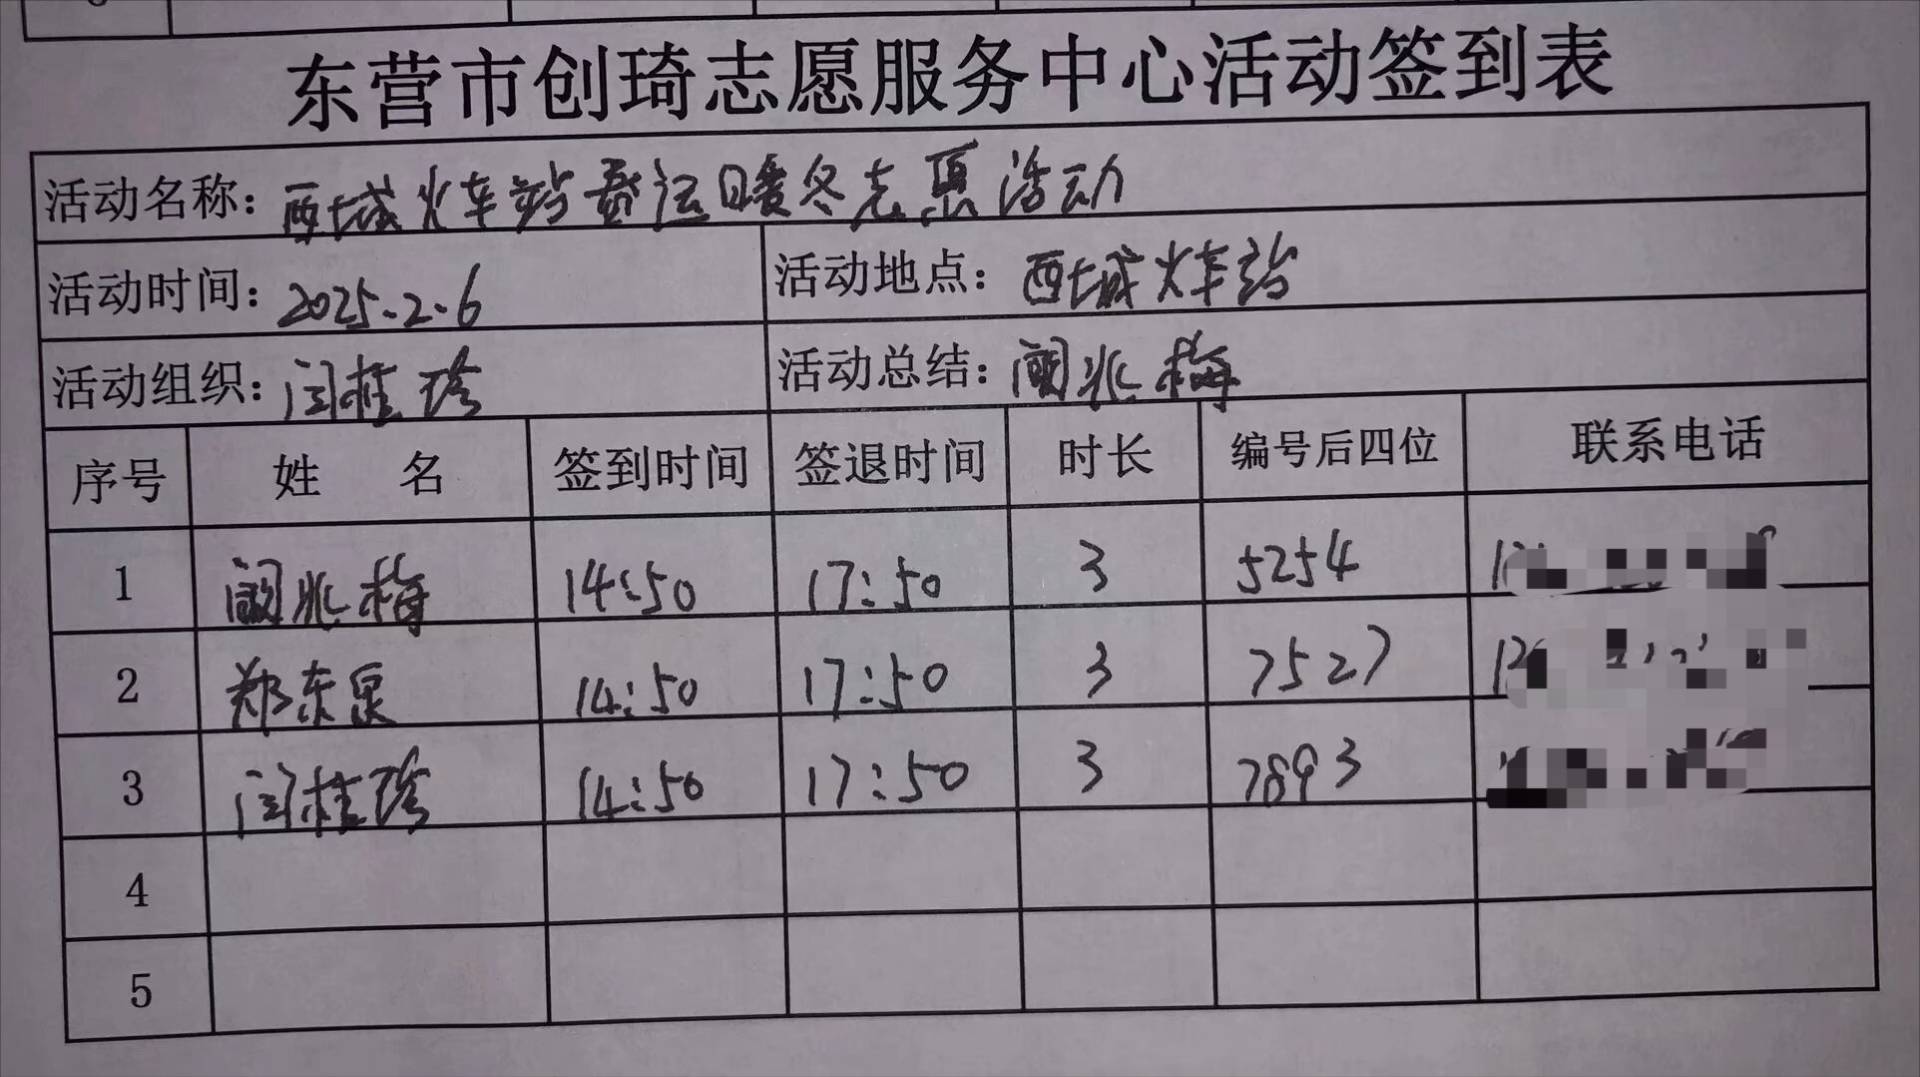 东营市创琦志愿服务中心活动签到表
活动名称: 西城火车站春运暖冬志愿活动
活动时间: 2025.2.6 活动地点: 西城火车站
活动组织: 闫桂珍 活动总结: 阚兆梅
序号 姓 名 签到时间 签退时间 时长 编号后四位 联系电话
1 阚兆梅 14:50 17:50 3 5254
2 郑东泉 14:50 17:50 3 7527
3 闫桂珍 14:50 17:50 3 7893
4
5